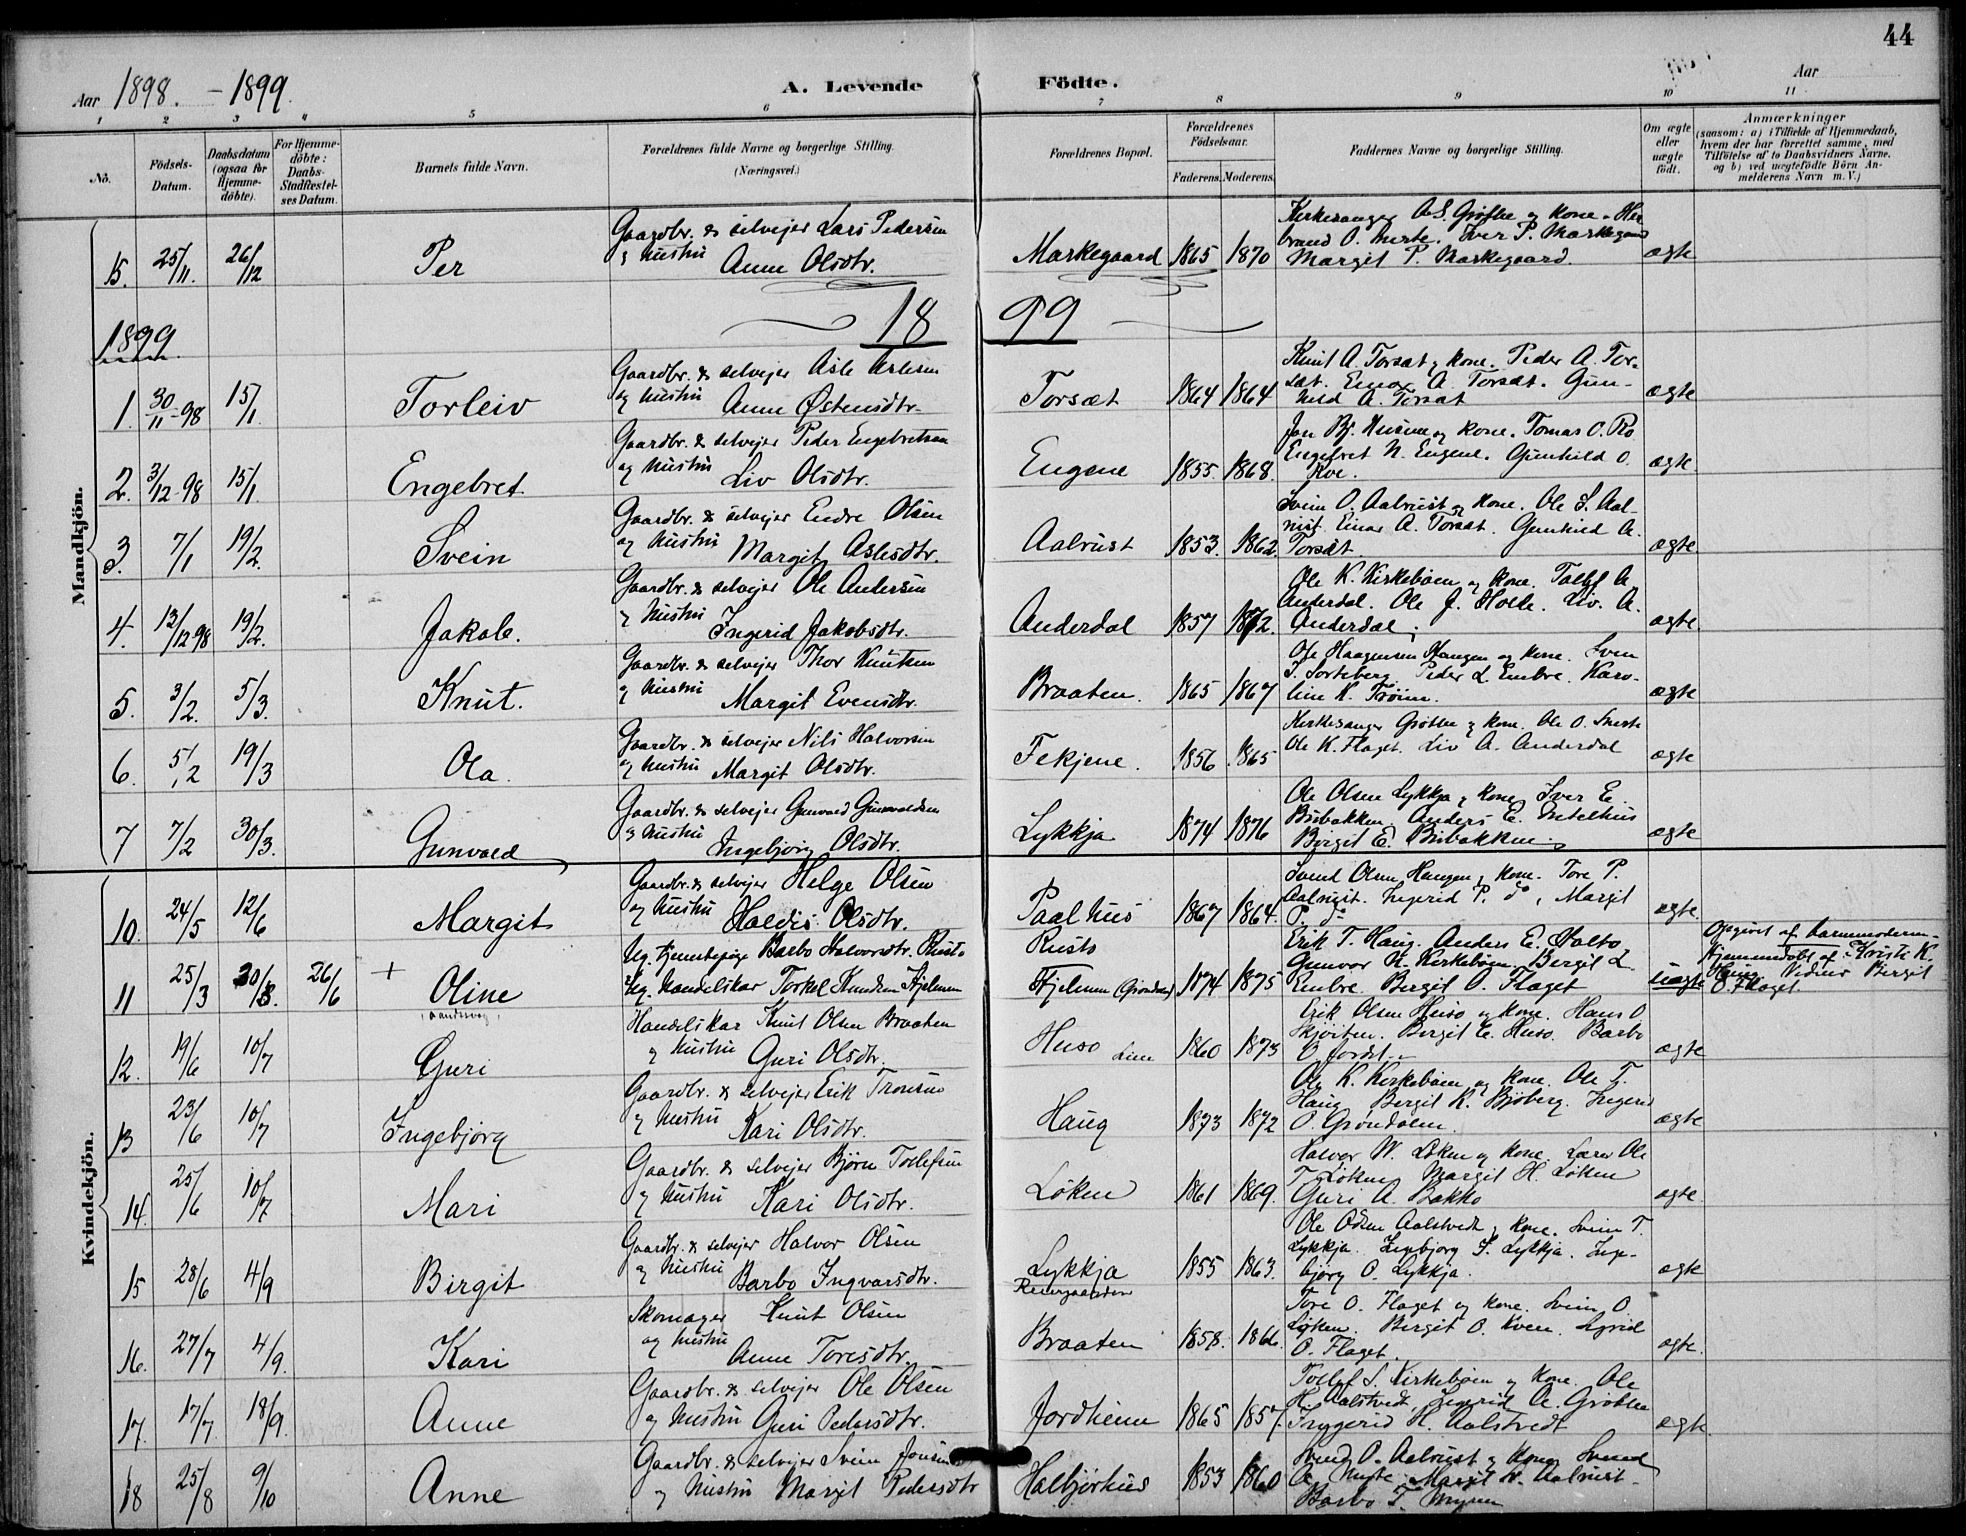 44
Aar 1898. - 1899.
A. Levende Födte.
Aar
1 2 3 4 5 6 7 8 9 10 11
No. Födsels-Datum. Daabsdatum (ogsaa for Hjemme-döbte). For Hjemme-döbte: Daabs-Stadfæstel-ses Datum. Barnets fulde Navn. Forældrenes fulde Navne og borgerlige Stilling. (Næringsvei.) Forældrenes Bopæl. Forældrenes Födselsaar. Faderens. Moderens. Faddernes Navne og borgerlige Stilling. Om ægte eller uægte födt. Anmærkninger (saasom: a) i Tilfælde af Hjemmedaab, hvem der har forrettet samme, med Tilföielse af to Daabsvidners Navne, og b) ved uægtefödte Börn An-melderens Navn m. V.)
Mandkjön.
15. 25/11. 26/12 Per Gaardbr. & selvejer Lars Pedersen
og Hustru Anne Olsdtr. Markegaard 1865 1870 Kirkesanger A.S. Grøthe og Kone. Her-
brand O. Snerte. Iver P. Markegaard
Margit P. Markegaard. ægte
1899 18 99
1. 30/11-98 15/1. Torleiv Gaardbr. & selvejer Asle Aslesen
og Hustru Anne Østensdtr. Torsæt 1864 1864 Knut A. Torsæt og Kone. Peder A. Tor-
sæt. Einar A. Torsæt. Gun-
hild A. Torsæt ægte
2. 3/12-98 15/1. Engebret Gaardbr. & selvejer Peder Engebretsen
og Hustru Liv Olsdtr. Eugene 1855. 1868. Jon Bj. og Kone. Tomas O.
Engebret N. Eugene. Gunhild O. ægte
3. 7/1 19/2. Svein Gaardbr. & selvejer Endre Olsen
og Hustru Margit Aslesdtr. Aalrust 1853. 1862. Svein O. Aalrust og Kone. Ole S. Aal-
rust. Einar A. Torsæt. Gunhild A.
Torsæt. ægte
4. 13/12 98 19/2. Jakob. Gaardbr. & selvejer Ole Andersen
og Hustru Ingerid Jakobsdtr. Anderdal 1857 1872. Ole K. Kirkebøen og Kone. Tollef A.
Anderdal. Ole J. Holle. Liv. A.
Anderdal. ægte.
5. 3/2. 5/3. Knut. Gaardbr. & selvejer Thor Knutsen
og Hustru Margit Evensdtr. Braaten. 1865 1867 Ole Haagensen Haugen og Kone. Sven
S. Sorteberg. Peder L. Embre. Karo-
line K. Trøim. ægte
6. 5/2 19/3 Ola. Gaardbr. & selvejer Nils Halvorsen
og Hustru Margit Olsdtr. Fekjene. 1856 1865 Kirkesanger Grøthe og Kone. Ole O. Snerte
Ole K. Flaget. Liv A. Anderdal ægte
7 7/2 30/3. Gunvald Gaardbr. & selvejer Gunvald Gunvaldsen
og Hustru Ingebjørg Olsdtr. Lykkja 1874 1876 Ole Olsen Lykkja og Kone. Iver E.
Brubakken. Anders E.
Birgit E. Brubakken ægte
Kvindekjön.
10. 24/5 12/6 Margit Gaardbr. & selvejer Helge Olsen
og Hustru Haldis Olsdtr. Paalhus 1867 1864. Svend Olsen Haugen og Kone. Tore P.
Aalrust. Ingerid P. do, Margit
P. do ægte.
11 25/3 30/3. 26/6 + Oline Ug. Tjenestepige Barbo Halvorsdtr. Rusto
Ug. Handelskar Torkel Knudsen Hjelmen Rusto
Hjelmen (Grøndal) 1874 1875 Erik T. Haug. Anders E. Holto
Gunvor K. Kirkebøen. Bergit L.
Embre. Bergit O. Flaget uægte Opgivet af Barnemoderen.
Hjemmedøbt af Kristi K.
Haug Vidner Bergit
O. Flaget.
12. 19/6 10/7 Guri Handelskar Knut Olsen Braaten
og Hustru Guri Olsdtr. Huso 1860 1873 Erik Olsen Huso og Kone. Hans O.
Bergit E. Huso. Barbo
ægte
13 23/6 10/7 Ingebjørg Gaardbr. & selvejer Erik Tronsen
og Hustru Kari Olsdtr. Haug 1873 1872 Ole K. Kirkebøen og Kone. Ole T.
Haug. Bergit K. Bjøberg. Ingerid
O. Grøndalen. ægte
14. 25/6 10/7 Mari Gaardbr. & selvejer Bjørn Tollefsen
og Hustru Kari Olsdtr. Løken 1861 1869. Halvor W. Løken og Kone. Lærer Ole
T. Løken. Margit H. Løken
Guri A. Bakko ægte
15 28/6 4/9 Birgit Gaardbr. & selvejer Halvor Olsen
og Hustru Barbo Ingvarsdtr. Lykkja 1855 1863. Ole Odsen Aalstvedt og Kone. Svein T.
Lykkja. Ingbjørg S. Lykkja. Inge-
bjørg O. Lykkja. ægte
16. 27/7 4/9. Kari Skomager Knut Olsen
og Hustru Anne Toresdtr. Braaten 1858. 1866. Tore O. Flaget og Kone. Svein O.
Løken. Bergit O. Kven. Sigrid
O. Flaget. ægte.
17. 17/7. 18/9. Anne Gaardbr. & selvejer Ole Olsen
og Hustru Guri Pedersdtr. Jordheim 1865 1857. Tollef S. Kirkebøen og Kone. Ole
H. Aalstvedt, Ingerid A. Grøthe
Ingerid H. Aalstvedt ægte.
18 25/8 9/10 Anne Gaardbr. & selvejer Svein Jonsen
og Hustru Margit Pedersdtr Halbjørhus 1853 1860 Svend O. Aalrust og Kone. Svend
Margit Aalrust.
Barbo T. Myren